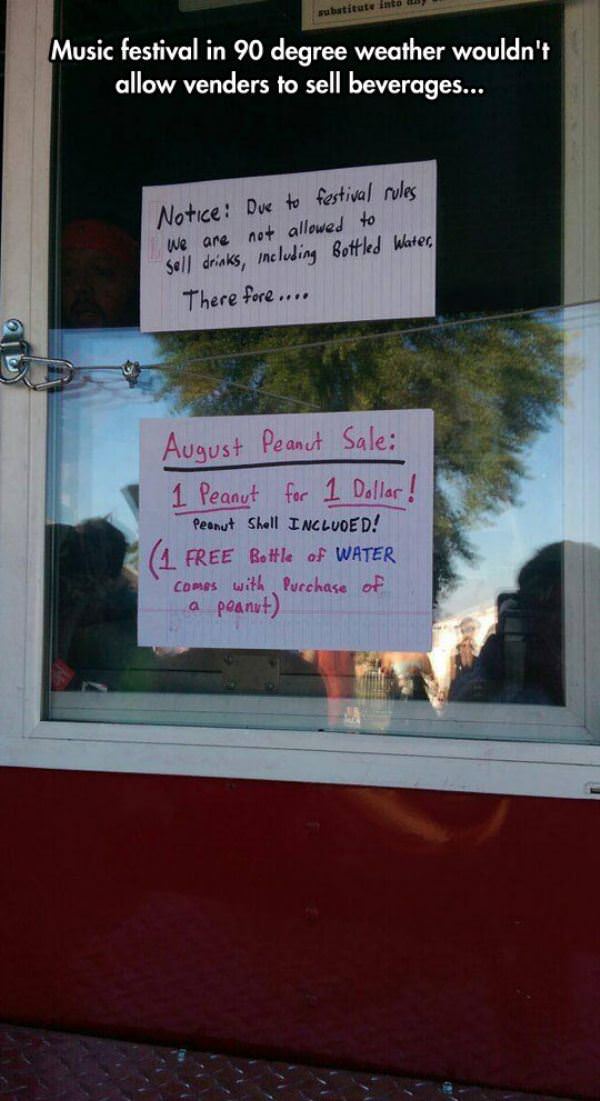 substitute into any
Music festival in 90 degree weather wouldn't
allow venders to sell beverages...
Notice: Due to festival rules
we are not allowed to
sell drinks, including Bottled Water.
There fore....
August Peanut Sale:
1 Peanut for 1 Dollar!
Peanut Shell INCLUDED!
(1 FREE Bottle of WATER
comes with Purchase of
a peanut)